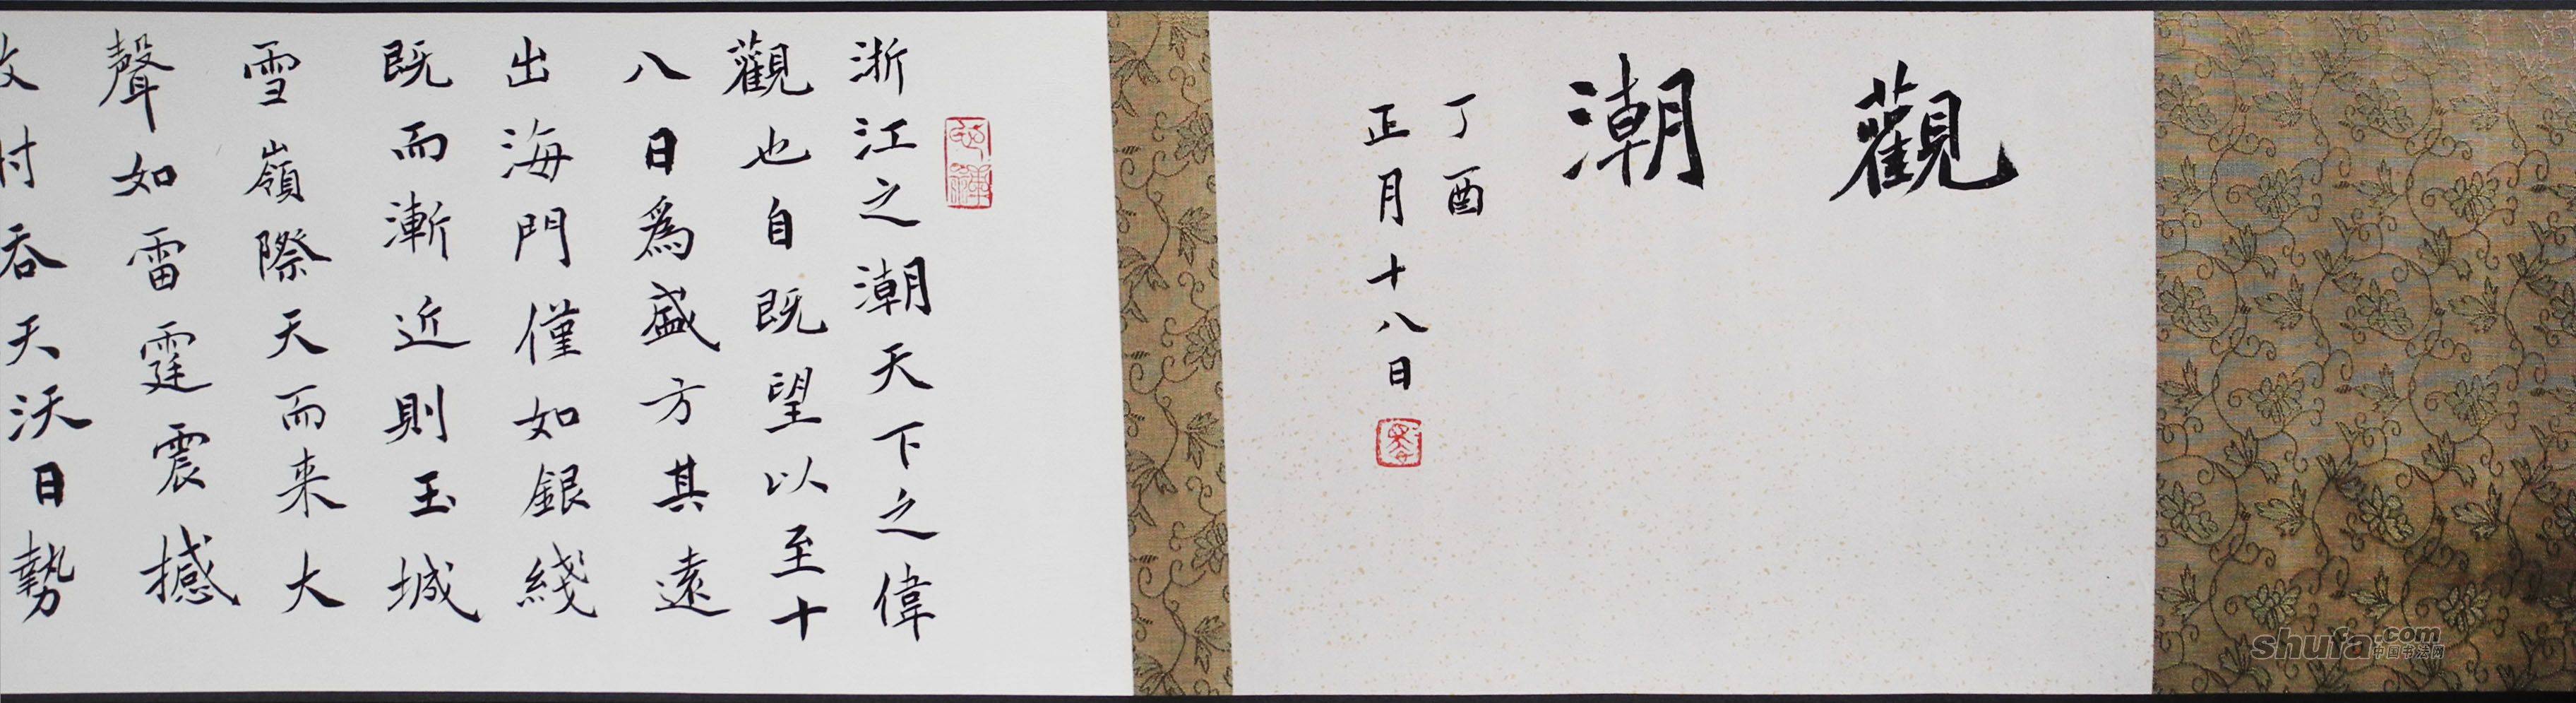 觀潮
丁酉
正月十八日
浙江之潮天下之偉
觀也自既望以至十
八日爲盛方其遠
出海門僅如銀綫
既而漸近則玉城
雪嶺際天而来大
聲如雷霆震撼
吞天沃日勢
shufa.com
中国书法网